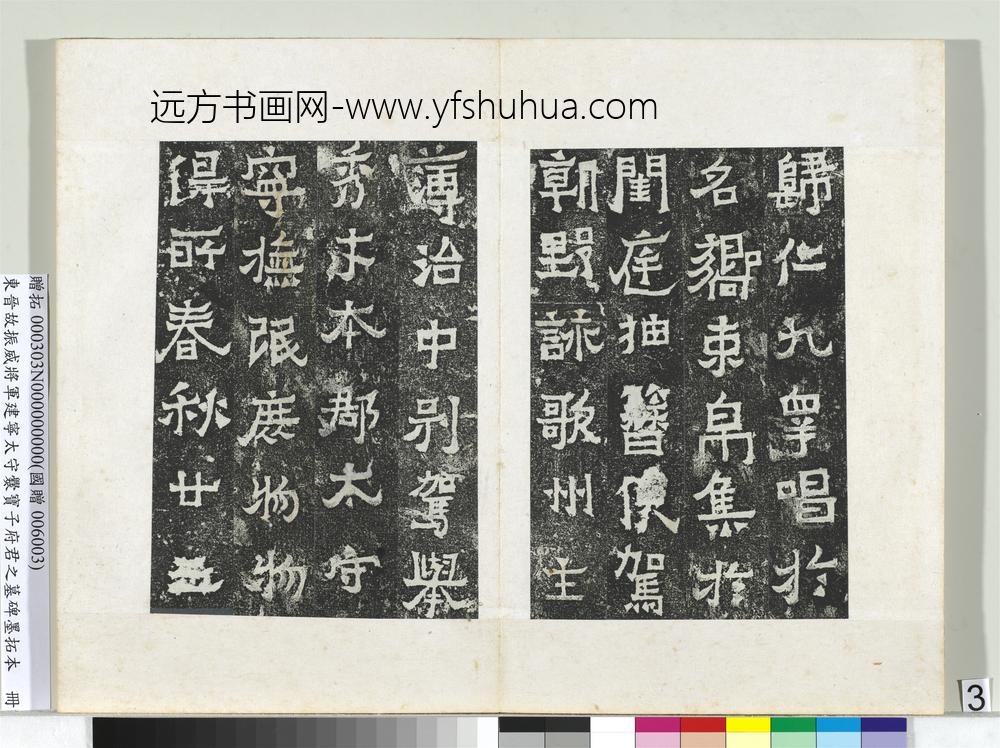 远方书画网-www.yfshuhua.com
歸仁九皋唱於
名嚮束帛集於
閨庭抽簪俟駕
朝野詠歌州主
薄治中别駕舉
秀才本郡太守
寧撫氓庶物物
得所春秋廿五
贈拓 000303N000000000(國贈 006003)
東晉故振威將軍建寧太守爨寶子府君之墓碑墨拓本 冊
3